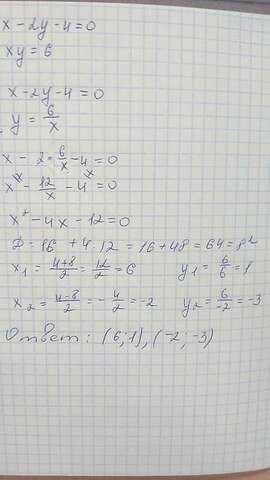 x - 2y - 4 = 0
xy = 6
x - 2y - 4 = 0
y = 6/x
x - 2 · 6/x - 4 = 0
x^x - 12/x - 4^x = 0
x² - 4x - 12 = 0
D = 16 + 4·12 = 16 + 48 = 64 = 8²
x₁ = (4+8)/2 = 12/2 = 6 y₁ = 6/6 = 1
x₂ = (4-8)/2 = -4/2 = -2 y₂ = 6/-2 = -3
Ответ: (6;1), (-2; -3)